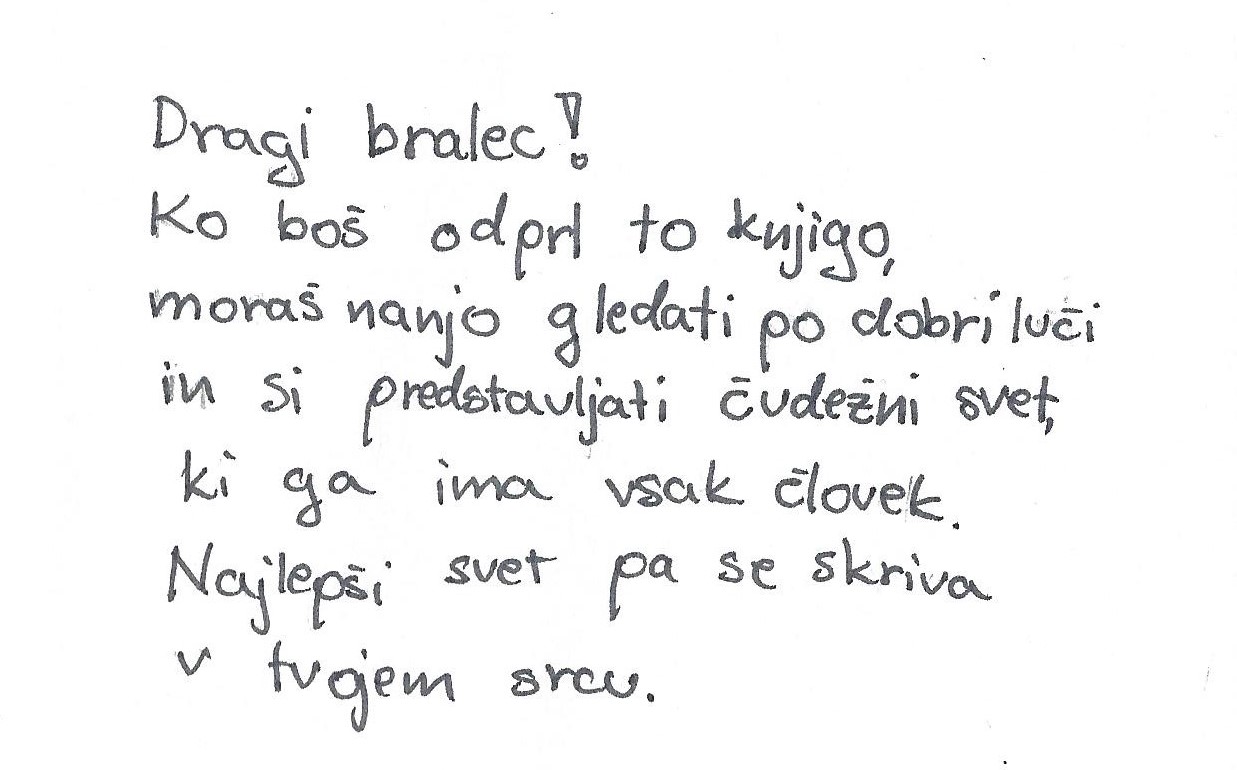 Dragi bralec!
Ko boš odprl to knjigo,
moraš nanjo gledati po dobri luči
in si predstavljati čudežni svet,
ki ga ima vsak človek.
Najlepši svet pa se skriva
v tvojem srcu.